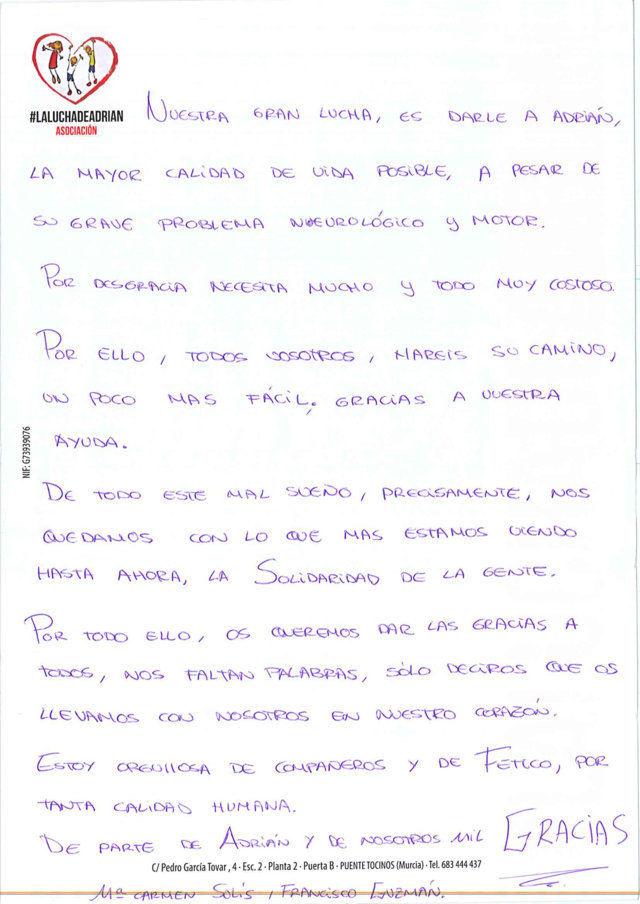 #LALUCHADEADRIAN
ASOCIACIÓN
NUESTRA GRAN LUCHA, ES DARLE A ADRIÁN,
LA MAYOR CALIDAD DE VIDA POSIBLE, A PESAR DE
SU GRAVE PROBLEMA NUEUROLÓGICO Y MOTOR.
POR DESGRACIA NECESITA MUCHO Y TODO MUY COSTOSO.
POR ELLO, TODOS VOSOTROS, HAREIS SU CAMINO,
UN POCO MAS FÁCIL. GRACIAS A VUESTRA
AYUDA.
NIF: G73939076
DE TODO ESTE MAL SUEÑO, PRECISAMENTE, NOS
QUEDAMOS CON LO QUE MAS ESTAMOS VIENDO
HASTA AHORA, LA SOLIDARIDAD DE LA GENTE.
POR TODO ELLO, OS QUEREMOS DAR LAS GRACIAS A
TODOS, NOS FALTAN PALABRAS, SÓLO DECIROS QUE OS
LLEVAMOS CON NOSOTROS EN NUESTRO CORAZÓN.
ESTOY ORGULLOSA DE COMPAÑEROS Y DE FETICO, POR
TANTA CALIDAD HUMANA.
DE PARTE DE ADRIÁN Y DE NOSOTROS MIL GRACIAS
C/ Pedro García Tovar, 4 · Esc. 2 · Planta 2 · Puerta B · PUENTE TOCINOS (Murcia) · Tel. 683 444 437
Mª CARMEN SOLÍS, FRANCISCO GUZMÁN.